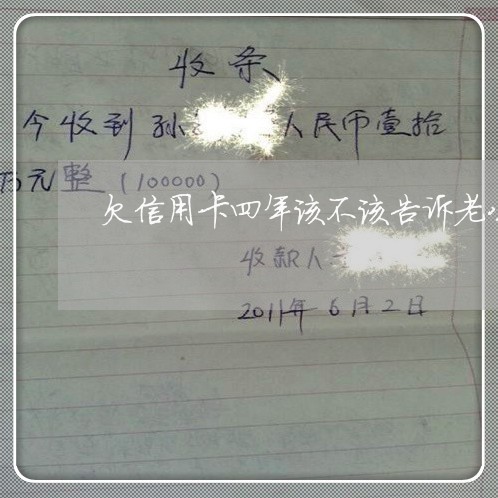 收条
今收到孙 人民币壹拾
万元整（100000）
欠信用卡四年该不该告诉老
收款人
2011年6月2日